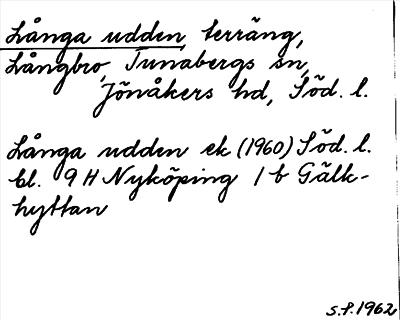 Långa udden, terräng,
Långbro, Tunabergs sn,
Jönåkers hd, Söd. l.
Långa udden ek (1960) Söd. l.
bl. 9 H Nyköping 1 b Gälk-
hyttan
S.P. 1962